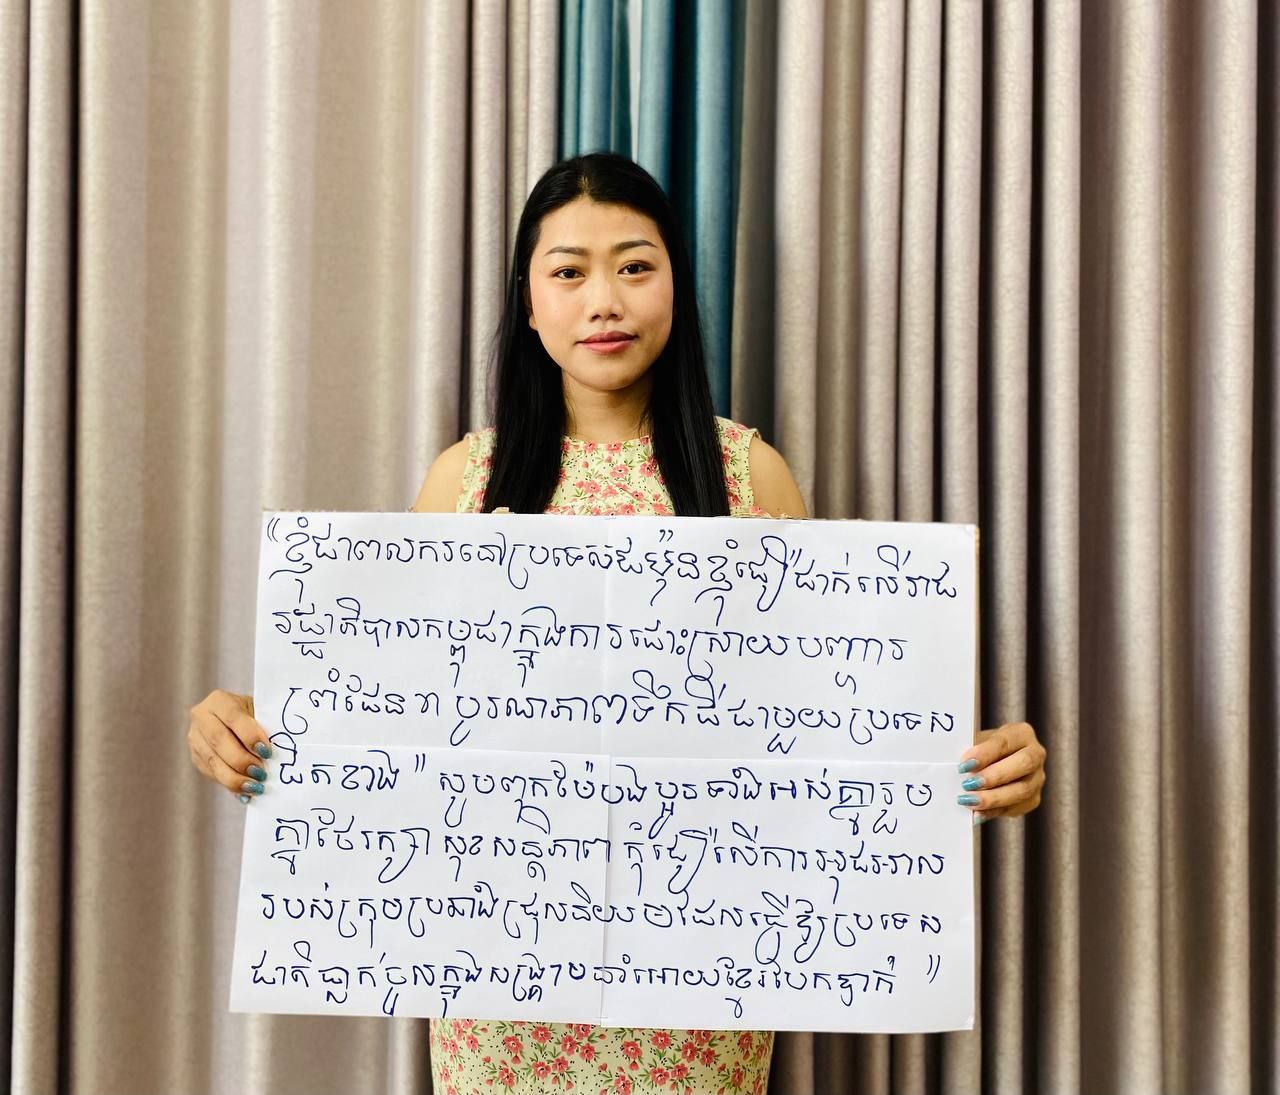 "ខ្ញុំជាពលករនៅប្រទេសជប៉ុនខ្ញុំជឿជាក់លើរាជ
រដ្ឋាភិបាលកម្ពុជាក្នុងការដោះស្រាយបញ្ហារ
ព្រំដែន បូរណភាពទឹកដីជាមួយប្រទេស
ជិតខាង" សូមពុកម៉ែបងប្អូនទាំងអស់គ្នារួម
គ្នាថែរក្សា សុខសន្តិភាព កុំជឿលើការអុជអាល
របស់ក្រុមប្រឆាំងជ្រុលនិយមដែលធ្វើឱ្យប្រទេស
ជាតិធ្លាក់ចូលក្នុងសង្គ្រាមនាំអោយខ្មែរបែកបាក់ "